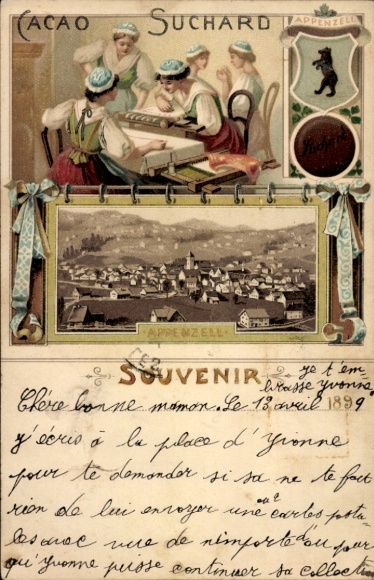 CACAO SUCHARD
APPENZELL
Suchard
APPENZELL
SOUVENIR
je t'em-
brasse Yvonne
Chère bonne maman. Le 13 avril 1899
j'écris à la place d'Yvonne
pour te demander si sa ne te fait
rien de lui envoyer une ou 2 cartes posta-
les avec vue de n'importe d'ou pour
qu'Yvonne puisse continuer sa collecti